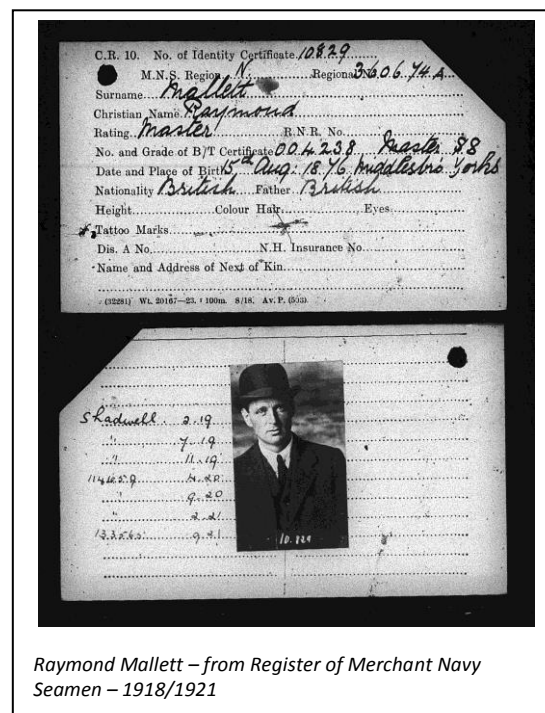 C.R. 10. No. of Identity Certificate 10829
M.N.S. Region N. Regional No. 360674
Surname Mallett
Christian Name Raymond
Rating Master R.N.R. No.
No. and Grade of B/T Certificate 004238 Master SS
Date and Place of Birth 15th Aug: 1876 Middlesbro Yorks
Nationality British Father British
Height Colour Hair Eyes
Tattoo Marks
Dis. A No. N.H. Insurance No.
Name and Address of Next of Kin
(32281) Wt. 20167—23. 100m. 8/18. Av. P. (503).
Shadwell 2.19
" 7.19
" 11.19
4.20
" 9.20
" 2.21
9.21
10.829
Raymond Mallett – from Register of Merchant Navy
Seamen – 1918/1921